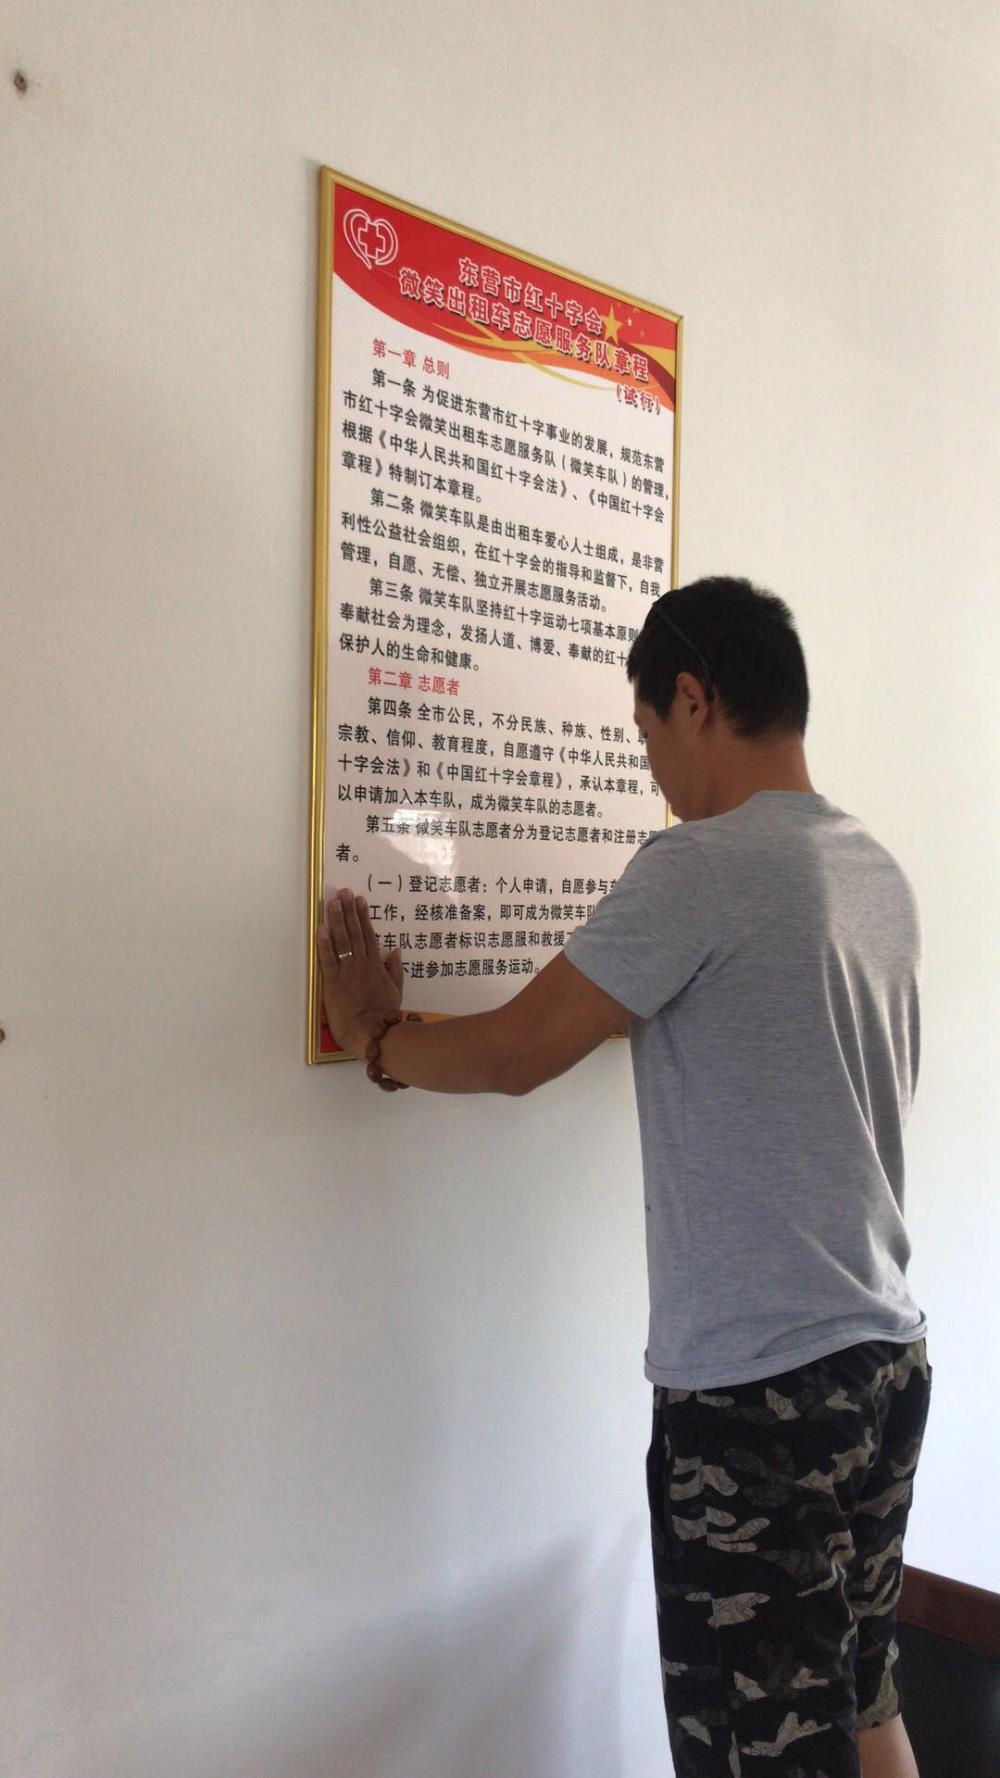 东营市红十字会
微笑出租车志愿服务队章程
（试行）
第一章 总则
第一条 为促进东营市红十字事业的发展，规范东营
市红十字会微笑出租车志愿服务队（微笑车队）的管理，
根据《中华人民共和国红十字会法》、《中国红十字会
章程》特制订本章程。
第二条 微笑车队是由出租车爱心人士组成，是非营
利性公益社会组织，在红十字会的指导和监督下，自我
管理，自愿、无偿、独立开展志愿服务活动。
第三条 微笑车队坚持红十字运动七项基本原则
奉献社会为理念，发扬人道、博爱、奉献的红十
保护人的生命和健康。
第二章 志愿者
第四条 全市公民，不分民族、种族、性别、
宗教、信仰、教育程度，自愿遵守《中华人民共和国
十字会法》和《中国红十字会章程》，承认本章程，可
以申请加入本车队，成为微笑车队的志愿者。
第五条 微笑车队志愿者分为登记志愿者和注册志愿
者。
（一）登记志愿者：个人申请，自愿参与
工作，经核准备案，即可成为微笑车队
车队志愿者标识志愿服和救援
下进参加志愿服务运动。